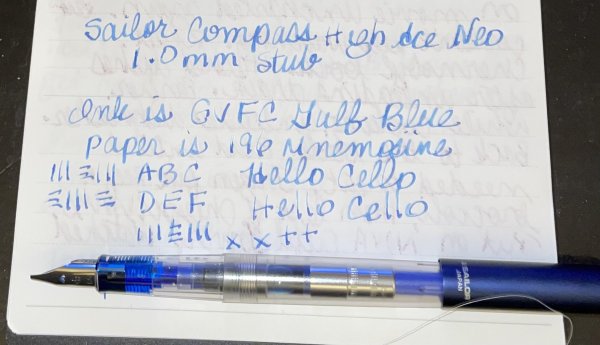 Sailor Compass High Ace Neo
1.0mm Stub
Ink is GVFC Gulf Blue
paper is 196 Mnemosine
ABC Hello Cello
DEF Hello Cello
x x + +
SAILOR
JAPAN